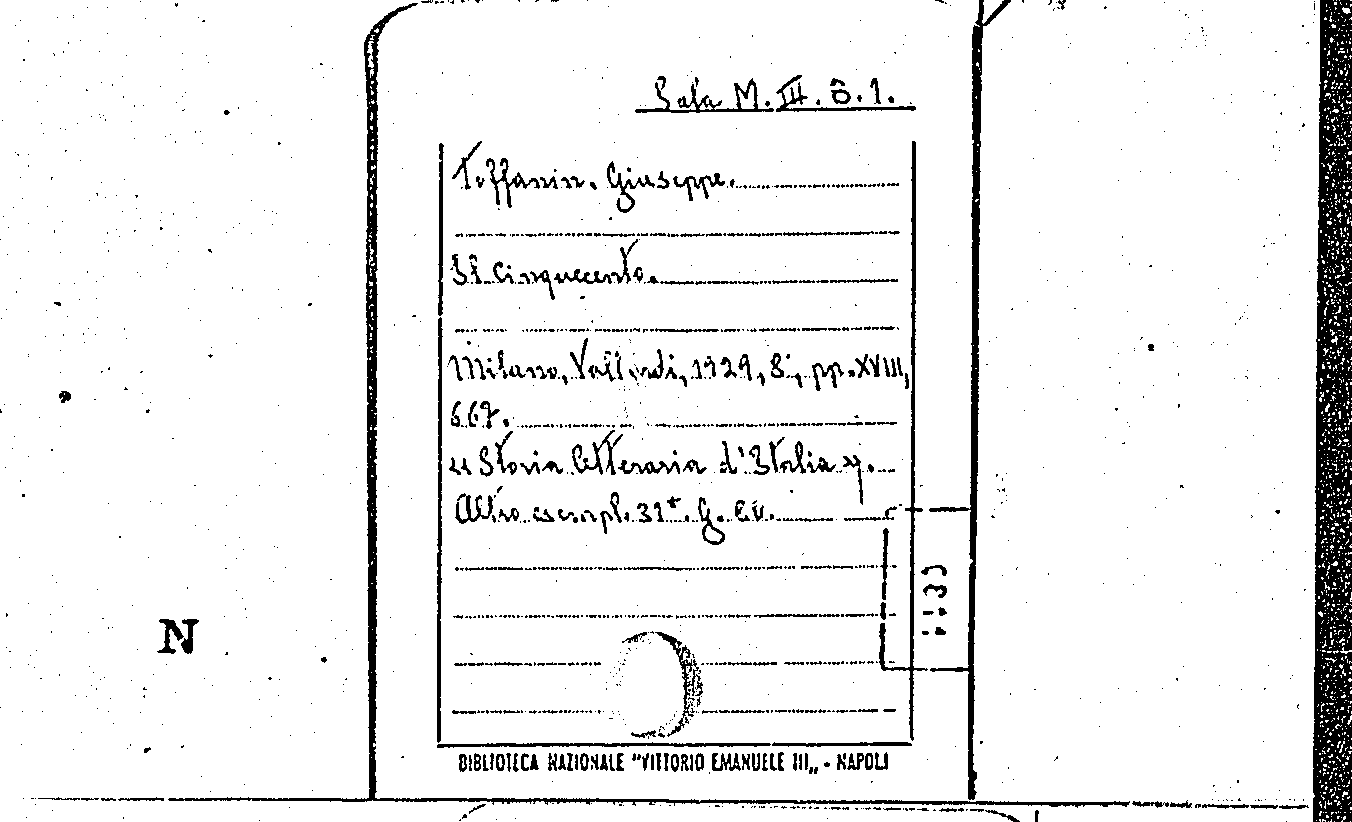 Sala M. III. Ô. 1.
Toffanin. Giuseppe.
Il Cinquecento.
Milano, Vallardi, 1929, 8°, pp. XVIII,
667.
« Storia letteraria d'Italia ».
Altro esempl. 31
N
BIBLIOTECA NAZIONALE "VITTORIO EMANUELE III„ - NAPOLI